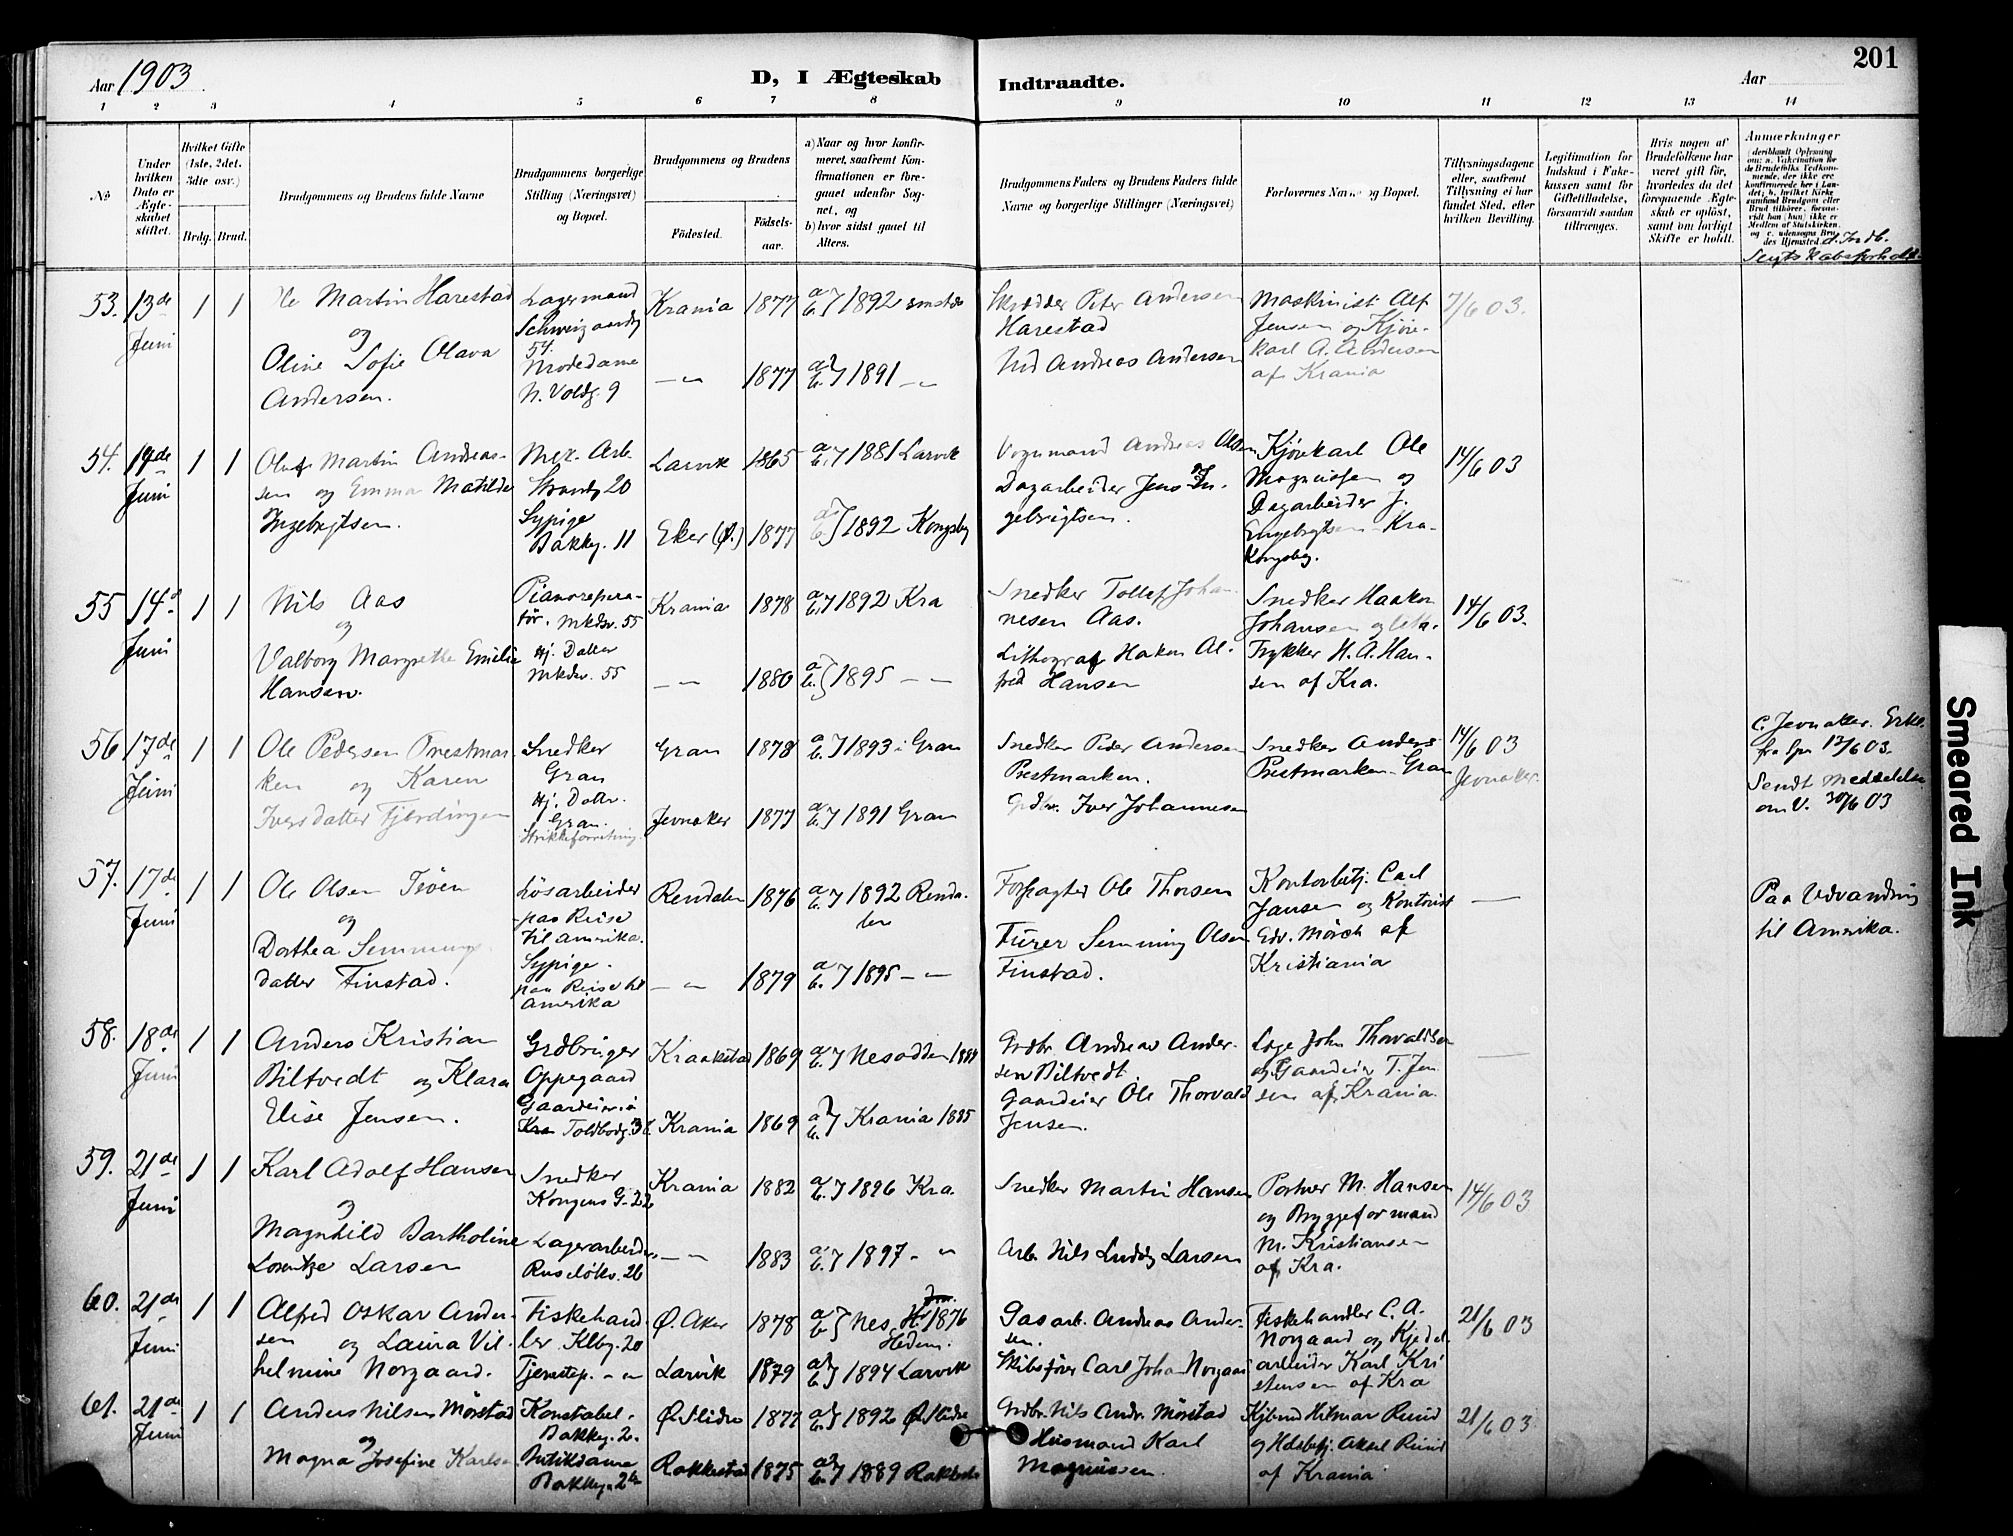 201
Aar 1903
D, I Ægteskab
Indtraadte.
Aar
1 2 3 4 5 6 7 8 9 10 11 12 13 14
No.
Under hvilken Dato er Ægteskabet stiftet.
Hvilket Gifte (1ste, 2det, 3die osv.)
Brdg. Brud.
Brudgommens og Brudens fulde Navne
Brudgommens borgerlige Stilling (Næringsvei) og Bopæl.
Brudgommens og Brudens
Fødested.
Fødselsaar.
a) Naar og hvor konfirmeret, saafremt Konfirmationen er foregaaet udenfor Sognet, og
b) hvor sidst gaaet til Alters.
Brudgommens Faders og Brudens Faders fulde Navne og borgerlige Stillinger (Næringsvei)
Forlovernes Navne og Bopæl.
Tillysningsdagene eller, saafremt Tillysning ei har fundet Sted, efter hvilken Bevilling.
Legitimation for Indskud i Enkekassen samt for Giftetilladelse, forsaavidt saadan tiltrænges.
Hvis nogen af Brudefolkene har været gift før, hvorledes da det foregaaende Ægteskab er opløst, samt om lovligt Skifte er holdt.
Anmærkninger
53. 13de Juni 1 1
Martin Harestad
og
Oline Sofie Olava
Andersen.
Lagermand
Schweigaardsg
54.
Modedame
N. Voldg. 9
Krania 1877 a b} 1892 smstds
— " — 1877 a b} 1891 — " —
Skrædder Peter Andersen
Harestad
Andreas Andersen
Maskinist Alf
Jensen og Kjøre-
karl A. Andersen
af Krania
7/6 03.
54. 14de Juni 1 1
Martin Andreas-
sen og Emma Matilde
Ingebrigtsen.
Mek. Arb.
Strandg 20
Sypige
Bakkg. 11
Larvik 1865 a b} 1881 Larvik
Eker (Ø.) 1877 a b} 1892 Kongsbg
Vognmand Andreas Olsen
Dagarbeider Jens In-
gebrigtsen.
Kjørekarl Ole
Magnussen og
Dagarbeider J.
Engebrigtsen Kra-
Kongsbg.
14/6 03
55 14de Juni 1 1
Nils Aas
og
Valborg Margrethe Emilie
Hansen.
Pianorepara-
tør. Mkdsv. 55
Hj. Datter
Mkdsv. 55
Krania 1878 a b} 1892 Kra
— " — 1880 a b} 1895 — " —
Snedker Tollef Johan-
nesen Aas.
Lithograf Hakon Al-
fred Hansen
Snedker Haakon
Johansen og
Trykker H. A. Han-
sen af Kra.
14/6 03.
56 17de Juni 1 1
Ole Pedersen Prestmar-
ken og Karen
Iversdatter Fjerdingen
Snedker
Gran
Hj. Datter.
Gran.
Strikkeforretning
Gran 1878 a b} 1893 i Gran
Jevnaker 1877 a b} 1891 Gran
Snedker Peder Andersen
Prestmarken.
Grdbr. Iver Johannesen
Snedker Anders
Prestmarken Gran
14/6 03
Jevnaker.
c. Jevnaker. Erkl.
fra Spr 12/6 03.
Sendt Meddelelse
om V. 30/6 03
57. 17de Juni 1 1
Ole Olsen
og
Dorthea Semmings-
datter Finstad.
Løsarbeider
paa Reise
til Amerika.
Sypige.
paa Reise til
Amerika
Rendalen 1876 a b} 1892 Renda-
len
— " — 1879 a b} 1895 — " —
Forpagter Ole Thorsen
Semming Olsen
Finstad.
Kontorbetj. Carl
Jansen og Kontorist
Edv. Mørch af
Kristiania
—
Paa Udvandring
til Amerika.
58. 18de Juni 1 1
Anders Kristian
Biltvedt og Klara
Elise Jensen.
Grdbruger
Oppegaard
Gaardeier i
Kra Toldbodg. 36
Kraakstad 1869 a b} Nesodden 1884
Krania 1869 a b} Krania 1885
Grdbr Andreas Ander-
sen Biltvedt.
Gaardeier Ole Thorvald
Jensen.
Læge John Thorvaldsen
og Gaardeier T. Jen
sen af Krania.
—
59. 21de Juni 1 1
Karl Adolf Hansen
og
Magnhild Bartholine
Lorentze Larsen
Snedker
Kongens G. 22
Lagerarbeider.
Ruseløkv. 26
Krania 1882 a b} 1896 Kra.
— " — 1883 a b} 1897 — " —
Snedker Martin Hansen
Arb Nils Ludvig Larsen
Portner M. Hansen
og Byggeformand
M. Kristiansen
af Kra.
14/6 03
60. 21de Juni 1 1
Alfred Oskar Ander-
sen og Laura Vil-
helmine Norgaard.
Fiskehand
ler Klbg. 20
Tjenestep. — " —
Ø. Aker 1878 a b} Nes, 1876
Hedem.
Larvik 1879 a b} 1894 Larvik
Gasarb. Andreas Ander-
sen.
Skibsfører Carl Johan Norgaard
Fiskehandler C. A.
Norgaard og Kjedel-
arbeider Karl Kri
stensen af Kra
21/6 03
61. 21de Juni 1 1
Anders Nilsen Mørstad
og
Magna Josefine Karlsen
Konstabel.
Bakkeg. 2.
Butikdame
Bakkeg. 2
Ø. Slidre 1877 a b} 1892 Ø. Slidre
Rakkestad 1875 a b} 1889 Rakkestad
Grdbr. Nils Andr. Mørstad
Husmand Karl
Magnussen.
Kjbmd Hilmar Ruud
og Aksel Ruud
af Krania
21/6 03
Smeared Ink